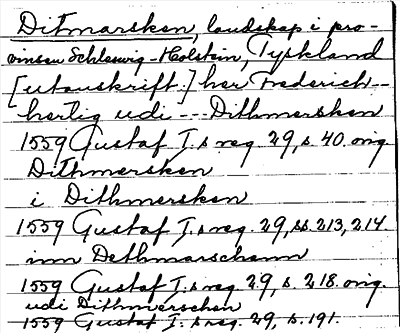 Ditmarsken, landskap i pro-
vinsen Schleswig-Holstein, Tyskland
[utanskrift:] her Frederich--
hertig udi --- Dithmersken
1559 Gustaf I:s reg. 29, s. 40. orig.
Dithmersken
i Dithmersken
1559 Gustaf I:s reg. 29, ss. 213, 214.
inn Dethmarschenn
1559 Gustaf I:s reg. 29, s. 218. orig.
udi Dithmerschen
1559 Gustaf I:s reg. 29, s. 191.